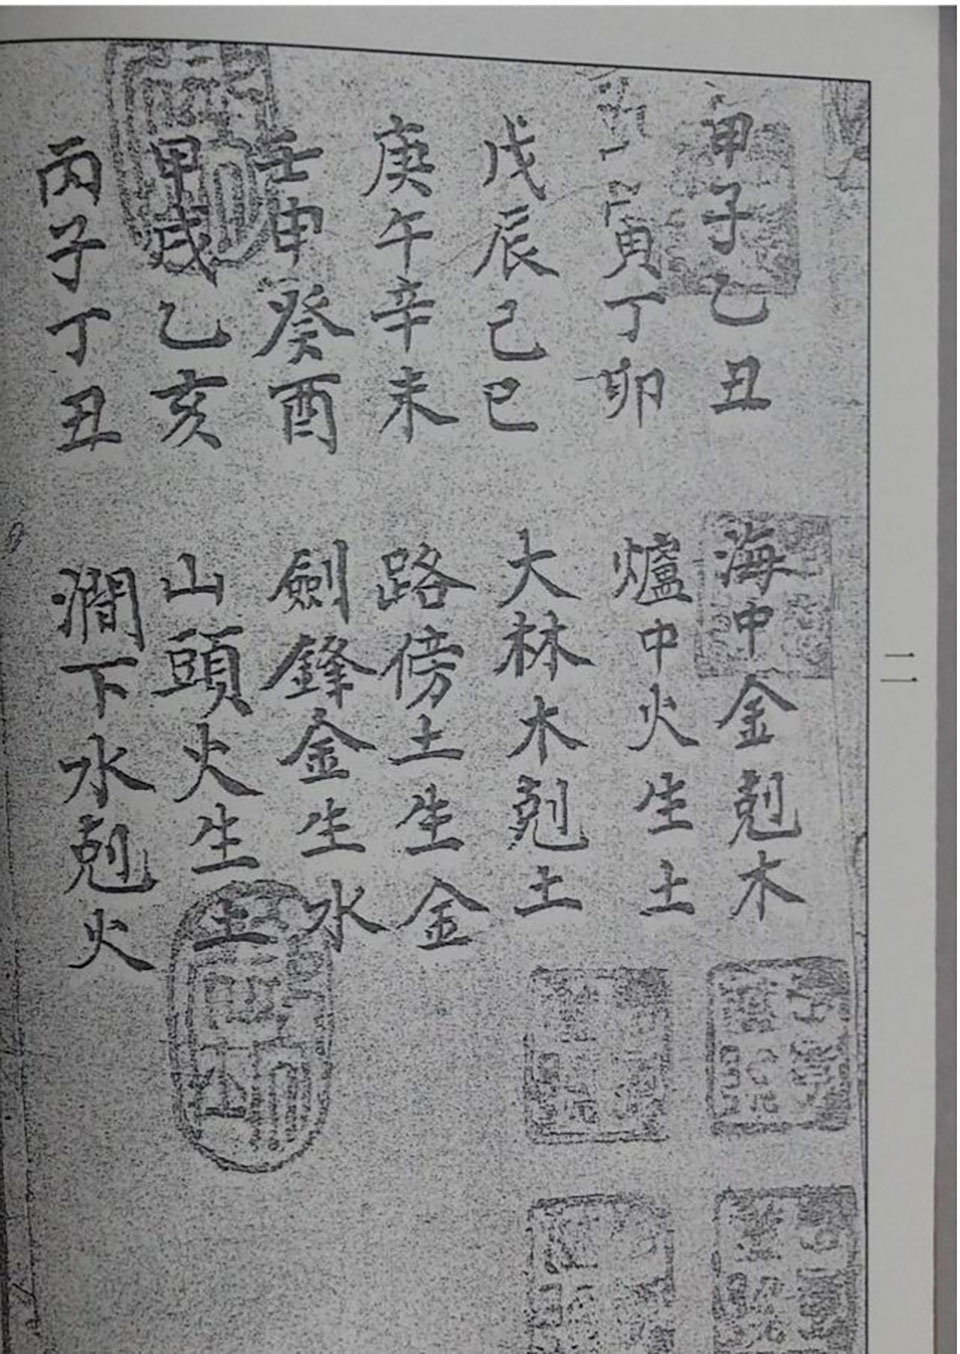 甲子乙丑 海中金剋木
寅丁卯 爐中火生土
戊辰己巳 大林木木剋土
庚午辛未 路傍土生金
壬申癸酉 劍鋒金生水
甲戌乙亥 山頭火生土
丙子丁丑 澗下水剋火
二